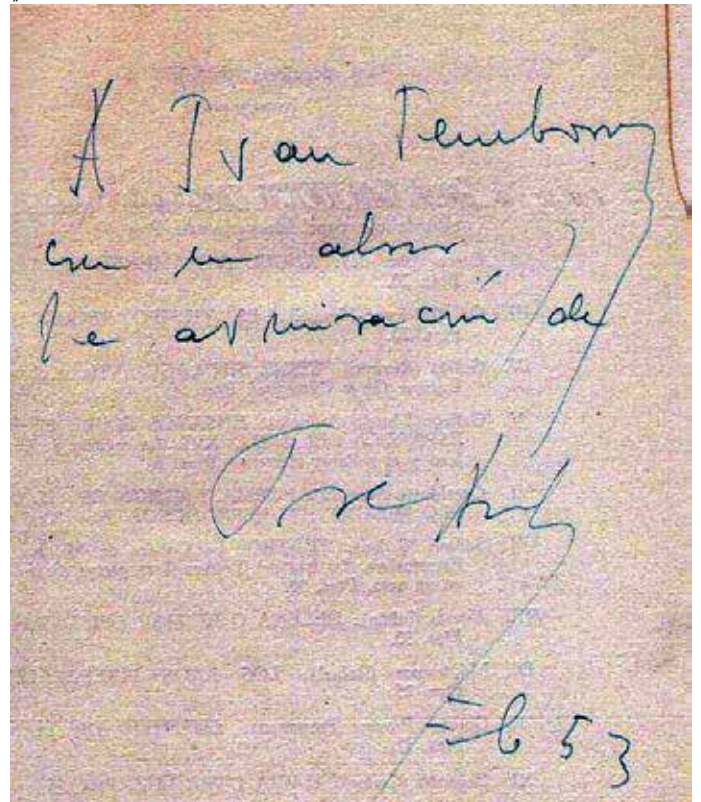 A Juan Temboury
con un abrazo
admiración de
Jose
Feb 53